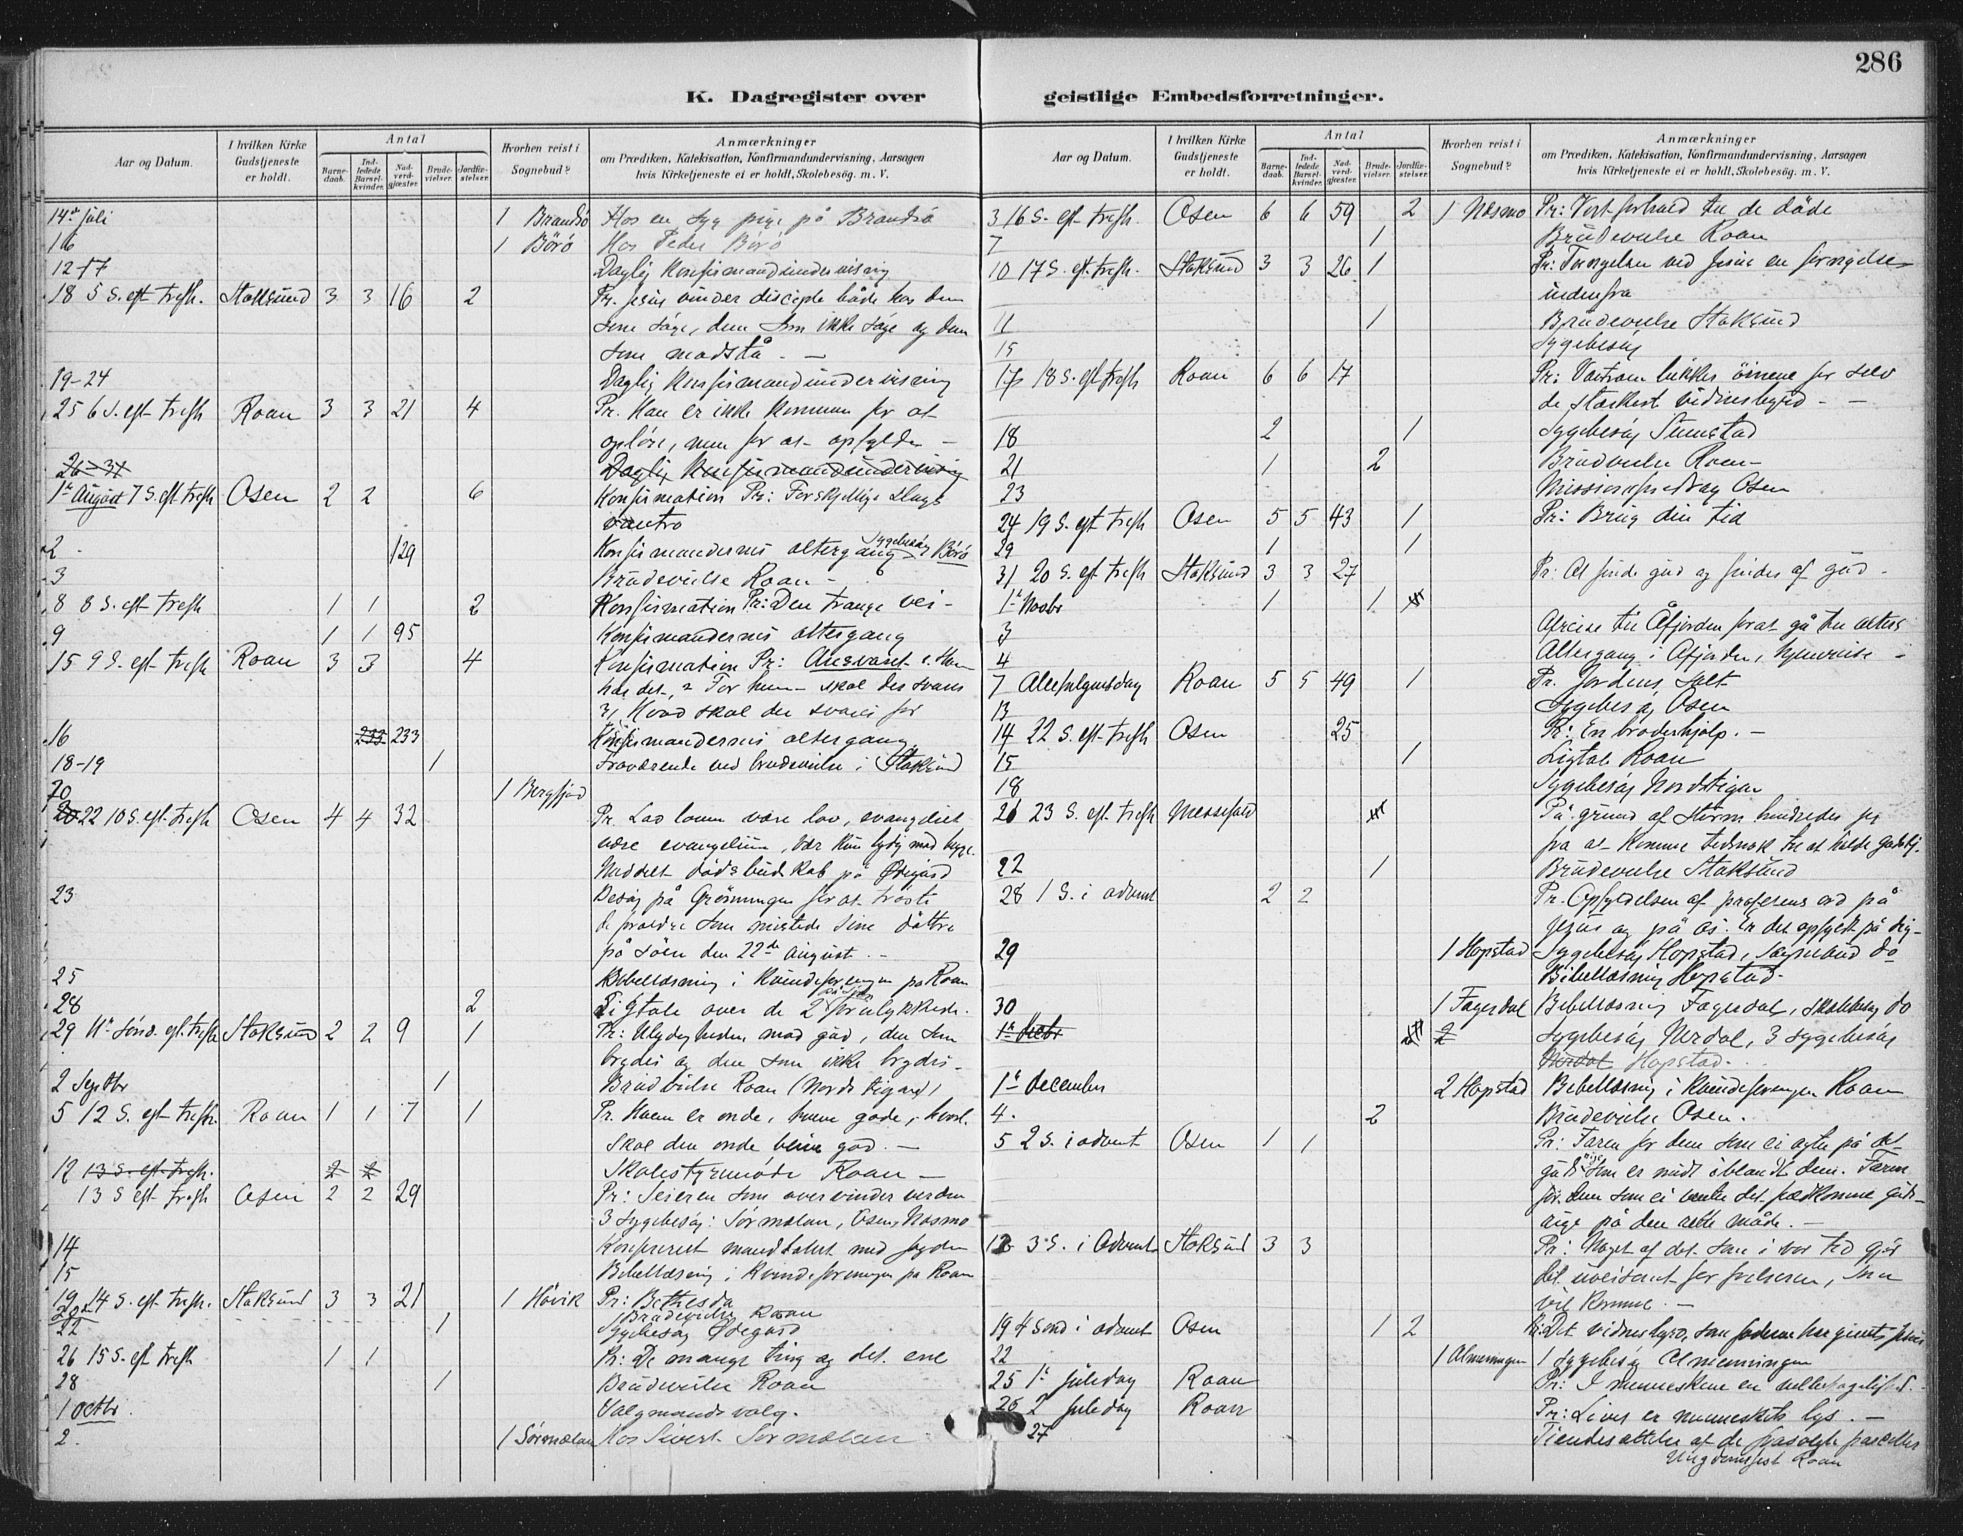 286
K. Dagregister over
Aar og Datum. I hvilken Kirke Gudstjeneste er holdt. Antal Barnedaab. Indledede Barselkvinder. Nadverdgjæster. Brudevielser. Jordfæstelser. Hvorhen reist i Sognebud? Anmærkninger om Prædiken, Katekisation, Konfirmandundervisning, Aarsagen hvis Kirketjeneste ei er holdt, Skolebesøg. m. V.
14de juli 1 Brandsö Hos en syg pige på Brandsö
16 1 Börö Hos Peder Börö
12-17 Daglig konfirmandundervisning
18 5 S. eft trefh. Stoksund 3 3 16 2 Pr. Jesus vinder disciple både hos dem
som söge, dem som ikke söge og dem
som modstå. —
19-24 Daglig konfirmandundervisning
25 6 S. eft trefh Roan 3 3 21 4 Pr. Han er ikke kommen for at
oplöse, men for at opfylde —
26-31 Daglig konfirmandundervisning
1ste August 7 S. eft trefh Osen 2 2 6 Konfirmation Pr: Forskjellige slags
vantro
2 129 Konfirmandernes altergang Sygebesög Börö
3 Brudevielse Roan -
8 8 S. eft trefh 1 1 2 Konfirmation Pr: Den trange vei -
9 1 1 95 Konfirmandernes altergang
15 9 S. eft trefh Roan 3 3 4 Konfirmation Pr: Ansvaret
har det, 2 For hvem skal der svares
3, Hvad skal der svares for
16 233 233 Konfirmandernes altergang
18-19 1 Fraværende ved brudevielse i Stoksund
20 1 Bergfjord
20 22 10 S. eft. trefh Osen 4 4 32 Pr. Lad loven være lov, evangeliet
være evangelium,
Meddelt dödsbudskab på Ødegård
23 Besög på Grönningen for at tröste
forældre som mistede sine döttre
på söen den 22de August. -
25 Bibellæsning i Kvindeforeningen på Roan
28 2 Ligtale over de 2 på sjöen forulykkede.
29 11te Sönd. eft. trefh Stoksund 2 2 9 1 Pr: Ulydigheden mod gud, den som
brydes og den som ikke brydes -
2 Septbr 1 Brudevielse Roan (Nordskigard)
5 12 S. eft trefh. Roan 1 1 7 1 Pr. Hvem er onde, hvem gode,
skal den onde blive god. —
12 13 S. eft. trefh. 2 2 Skolestyremöde Roan —
13 S eft trefh Osen 2 2 29 Pr: Seieren som overvinder verden
3 sygebesög: Sörmælan, Osen, Næsmo
14 Konfereret mandtallet med fogden
15 Bibellæsning i Kvindeforeningen på Roan
19 14 S. eft trefh. Stoksund 3 3 21 1 Hövik Pr: Bethesda
20 Brudevielse Roan
22 1 Sygebesög Ødegård
26 15 S. eft trefh 1 1 Pr: De mange ting og det ene
28 1 Brudevielse Roan
1 Octbr. Valgmandsvalg.
2. 1 Sörmælan Hos Sivert Sörmælan
geistlige Embedsforretninger.
Aar og Datum. I hvilken Kirke Gudstjeneste er holdt. Antal Barnedaab. Indledede Barselkvinder. Nadverdgjæster. Brudevielser. Jordfæstelser. Hvorhen reist i Sognebud? Anmærkninger om Prædiken, Katekisation, Konfirmandundervisning, Aarsagen hvis Kirketjeneste ei er holdt, Skolebesög. m. V.
3 16 S. eft trefh. Osen 6 6 59 2 1 Næsmo Pr: Vort forhold til de döde
7 1 Brudevielse Roan
10 17 S. eft. trefh. Stoksund 3 3 26 1 Pr: Fornyelsen ved Jesus en fornyelse
indenfra
11 1 Brudevielse Stoksund
15 Sygebesög
17 18 S. eft trefh Roan 6 6 17 Pr: Vantroen lukker öinene for selv
de stærkest vidnesbyrd - —
18 2 1 Sygebesög Sumstad
21 1 2 Brudevielse Roan -
23 Missionsforedrag Osen
24 19 S. eft trefh Osen 5 5 43 1 Pr: Brug din tid
29 1 1
31 20 S. eft trefh Stoksund 3 3 27 Pr: At finde gud og findes af gud -
1ste Novbr 1 1
3 Afreise til Åfjorden forat gå til alters
4 Altergang i Åfjorden, hjemreise -
7 Allehelgensdag Roan 5 5 49 1 Pr. Jordens Salt
13 Sygebesög Osen
14 22 S. eft trefh Osen 25 Pr: En broderhjælp. —
15 1 Ligtale Roan
18 Sygebesög Nordskigan
26 23 S. eft. trefh Messefald På grund af storm hindredes jeg
fra at komme tidsnok til at holde gudstj.
22 1 Brudevielse Stoksund
28 1 S. i advent 2 2 Pr. Opfyldelsen af profetens ord på
Jesus og på os. Er det opfyldt på dig -
29 1 Hopstad Sygebesög Hopstad, sognebud do
Bibellæsning Hopstad -
30 1 Fagerdal Bibellæsning Fagerdal, skolebesög do
1ste Decbr 2 Sygebesög Nerdal, 3 sygebesög
Nerdal Hopstad.
1ste December 2 Hopstad Bibellæsning i Kvindeforeningen Roan
4. 2 Brudevielse Osen.
5 2 S. i advent Osen 1 1 Pr: Faren for dem som ei agte på det
guds rige som er midt iblandt dem. Faren
for dem som ei vente det fuldkomne guds-
rige på den rette måde. —
12 3 S. i Advent Stoksund 3 3 Pr: Noget af det som i vor tid gjör
det uveisomt for frelseren, som
vil komme. —
19 4 Sönd i advent Osen 1 2 Pr: Det vidnesbyrd, som
22 1 Almenningen 1 Sygebesög Almenningen
25 1ste juledag Roan Pr: I menneskene en velbehagelighed.
26 2 juledag Roan Pr: Livet er menneskets lys. —
27 Tiendesættelse af de frasolgte parceller
Ungdomsfest Roan